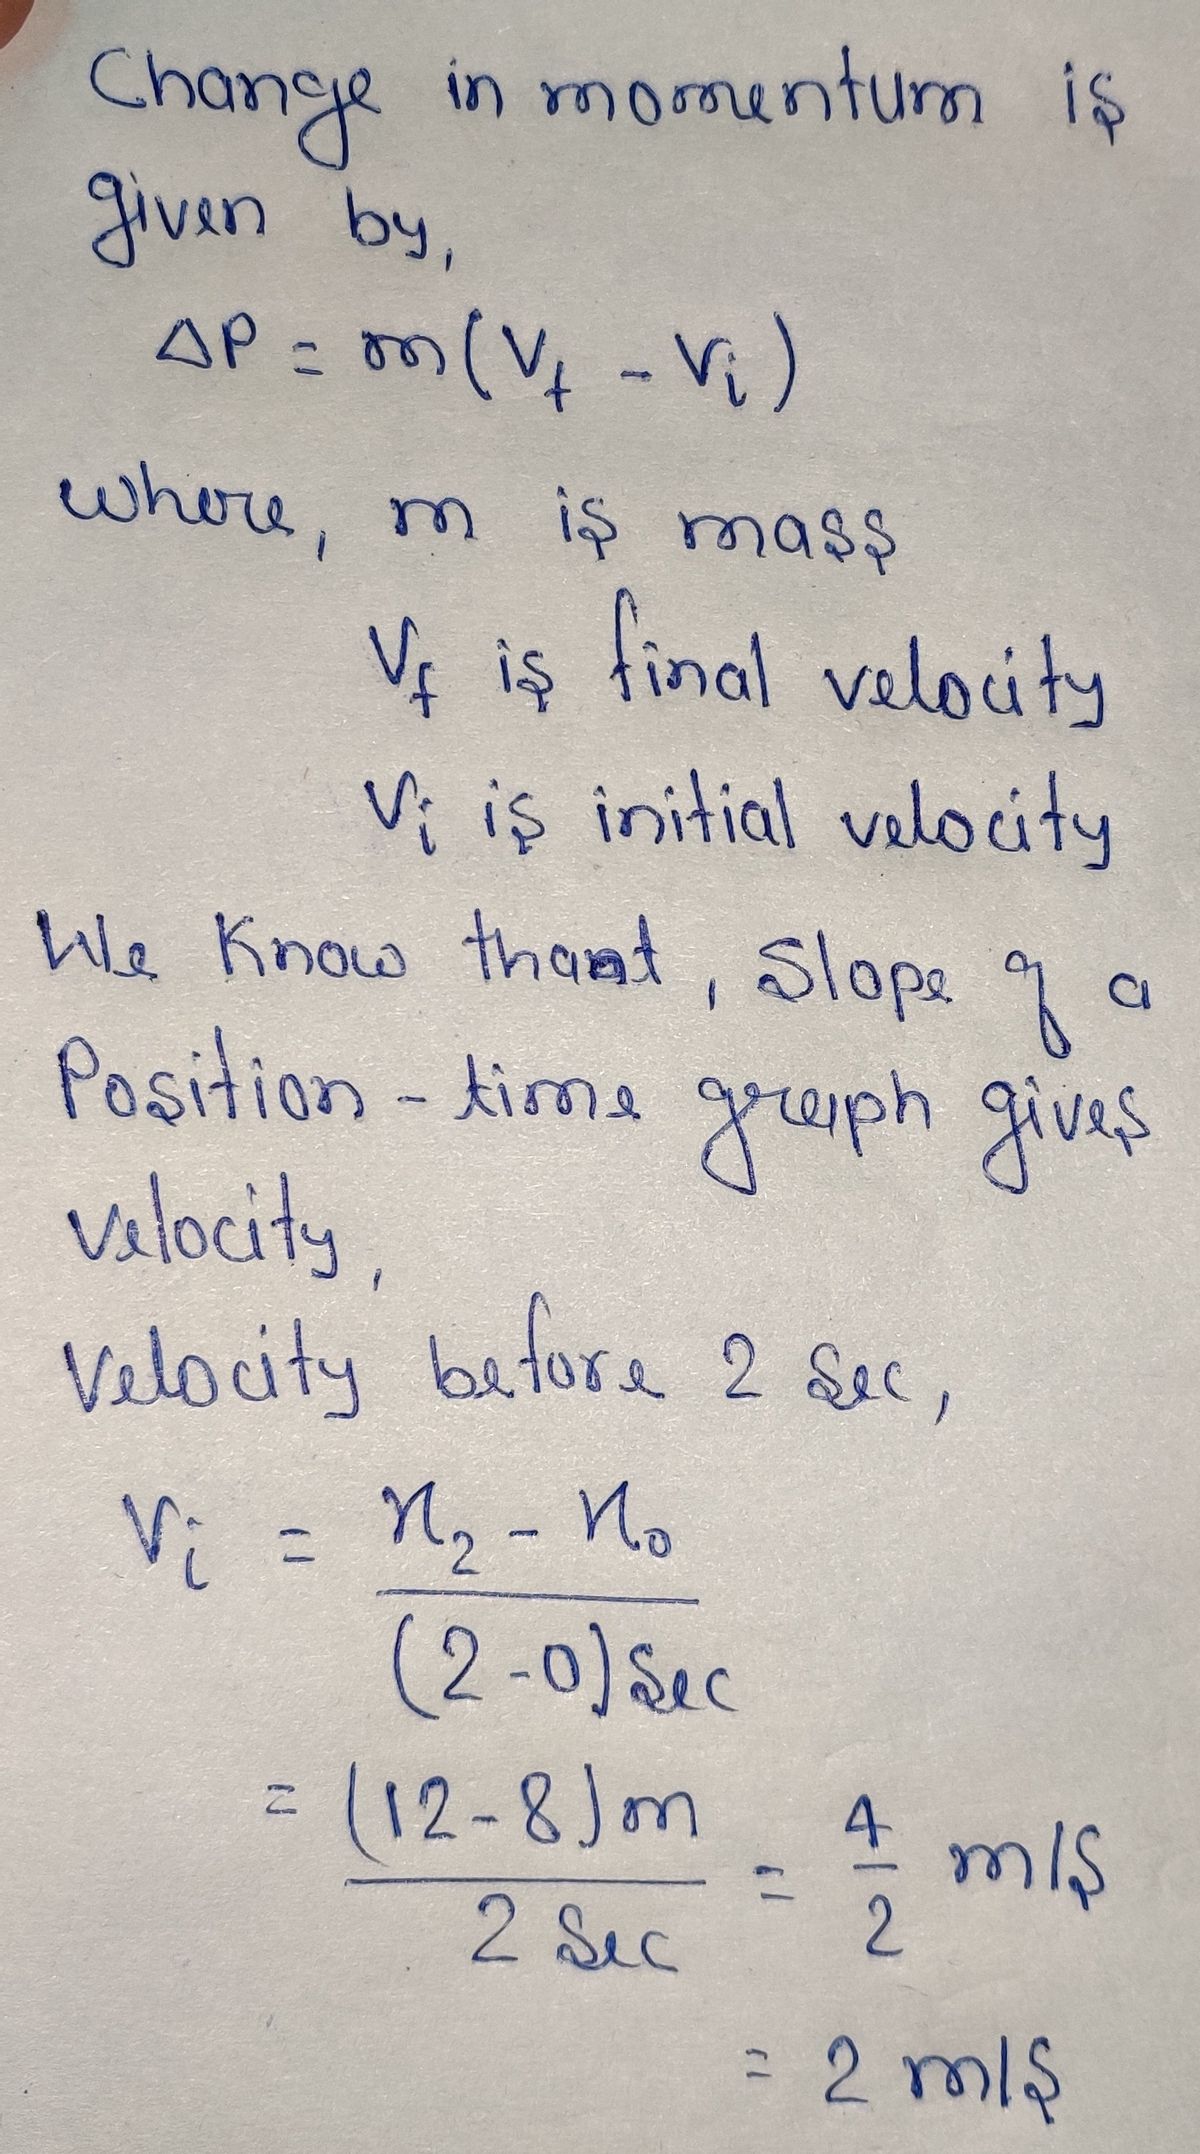 Change in momentum is
given by,
ΔP = m(Vf - Vi)
where, m is mass
Vf is final velocity
Vi is initial velocity
We Know that, Slope of a
Position - time graph gives
velocity,
Velocity before 2 sec,
Vi = x₂ - x₀
(2-0) sec
= (12-8) m = 4 m/s
2 sec 2
= 2 m/s